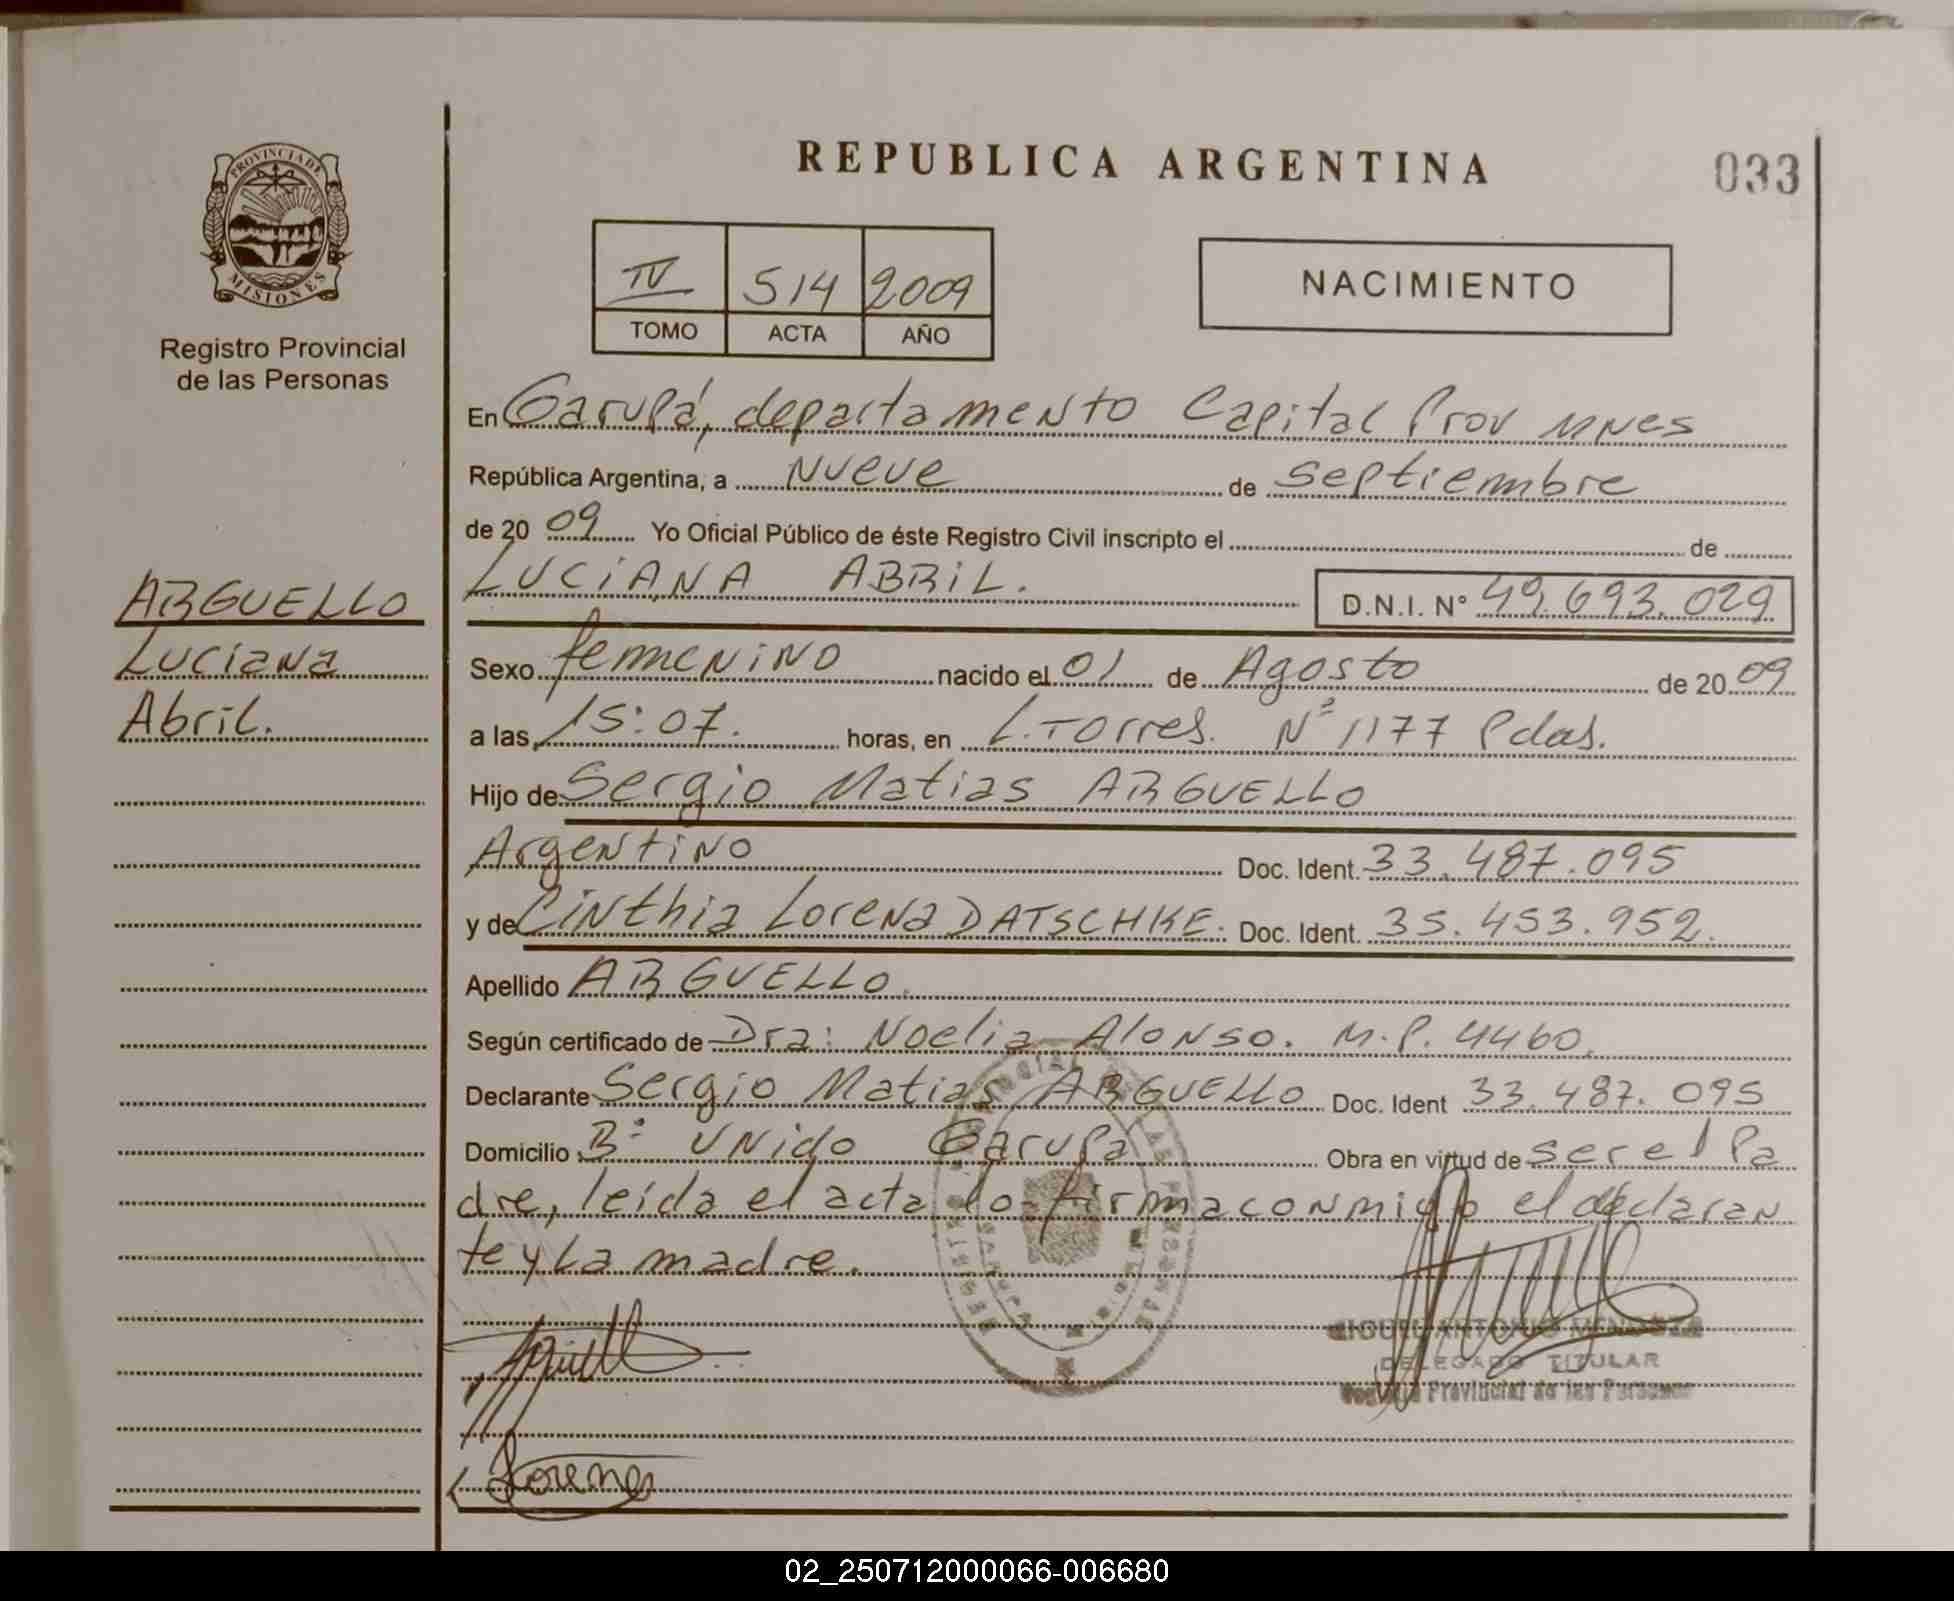 REPUBLICA ARGENTINA
033
PROVINCIA DE
MISIONES
Registro Provincial
de las Personas
IV 514 2009
TOMO ACTA AÑO
NACIMIENTO
En Garupá, departamento Capital Prov MNES
República Argentina, a Nueve de septiembre
de 20 09 Yo Oficial Público de éste Registro Civil inscripto el de
LUCIANA ABRIL.
D.N.I. N° 49.693.029
ARGUELLO
Luciana
Abril.
Sexo femenino nacido el 01 de Agosto de 20 09
a las 15:07. horas, en L. Torres. Nº 1177 Pdas.
Hijo de Sergio Matias ARGUELLO
Argentino Doc. Ident. 33.487.095
y de Cinthia Lorena DATSCHKE. Doc. Ident. 35.453.952.
Apellido ARGUELLO.
Según certificado de Dra: Noelia Alonso. M.P. 4460.
Declarante Sergio Matias ARGUELLO Doc. Ident 33.487.095
Domicilio Bº UNido Garupá Obra en virtud de ser el Pa
dre, leida el acta lo firma conmigo el declaran
te y La madre.
MIGUEL ANTONIO
DELEGADO TITULAR
Registro Provincial de las Personas
Lorena
02_250712000066-006680